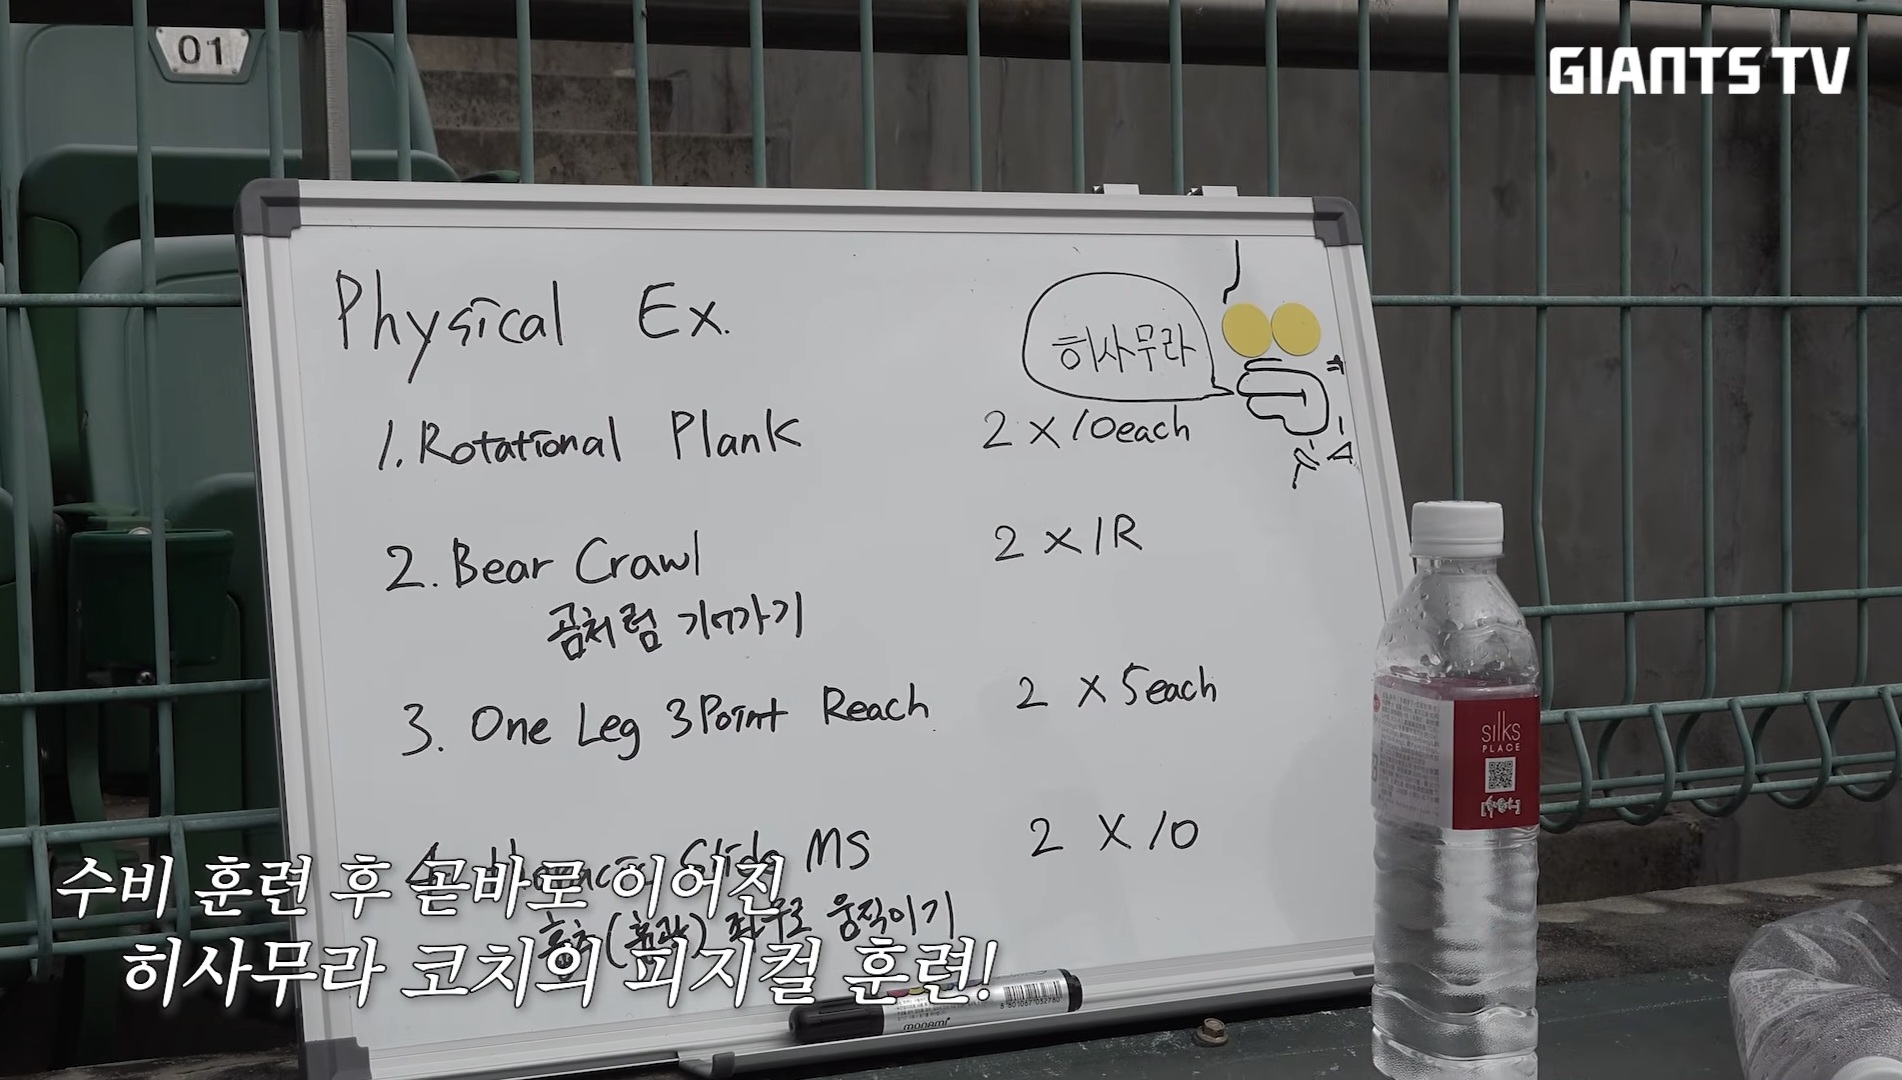 01
GIANTS TV
Physical Ex.
히사무라
1. Rotational Plank 2 X 10each
2. Bear Crawl 2 X 1R
곰처럼 기어가기
3. One Leg 3Point Reach 2 X 5each
4. MS 2 X 10
움직이기
수비 훈련 후 곧바로 이어진
히사무라 코치의 피지컬 훈련!
monami
silks
PLACE